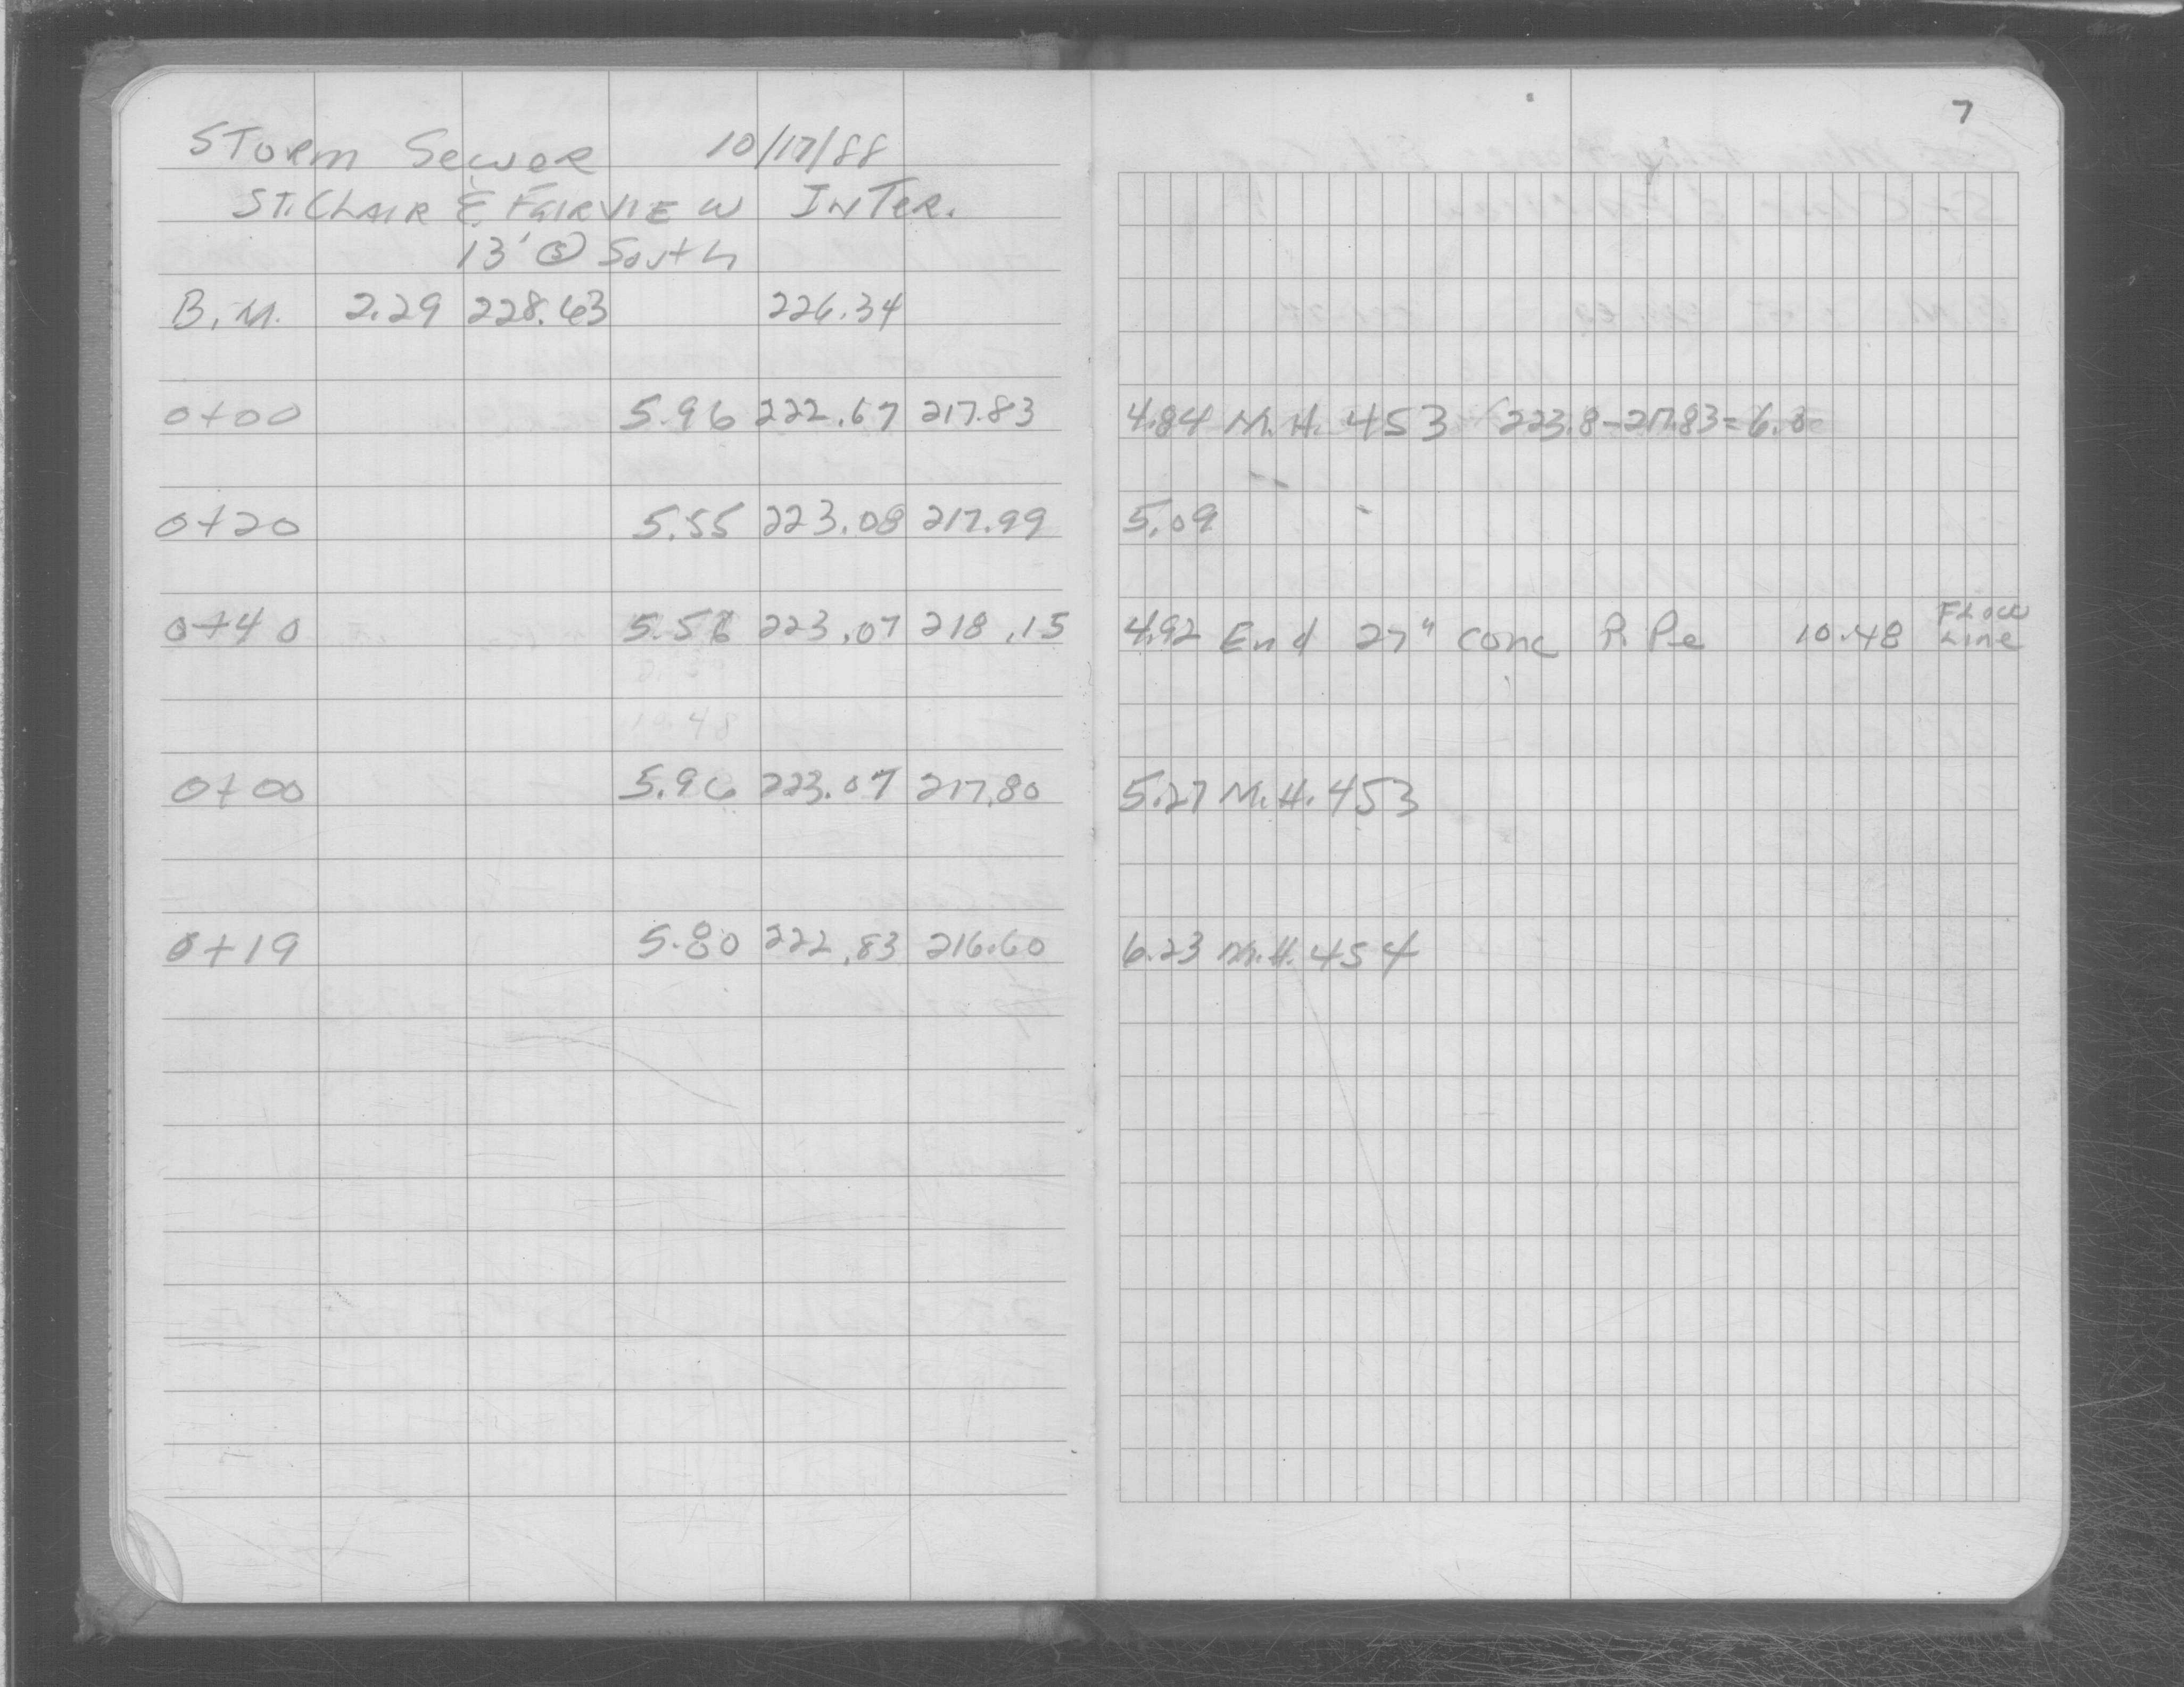 7
STORM SEWER 10/17/88
ST. CLAIR & FAIRVIEW INTER.
13' @ South
B.M. 2.29 228.63 226.34
0+00 5.96 222.67 217.83 4.84 M.H. 453 (223.8-217.83=6.0
0+20 5.55 223.08 217.99 5.09
0+40 5.56 223.07 218.15 4.92 End 27" conc PiPe 10.48 FLOW Line
10.48
0+00 5.96 223.07 217.80 5.27 M.H. 453
0+19 5.80 222.83 216.60 6.23 M.H. 454